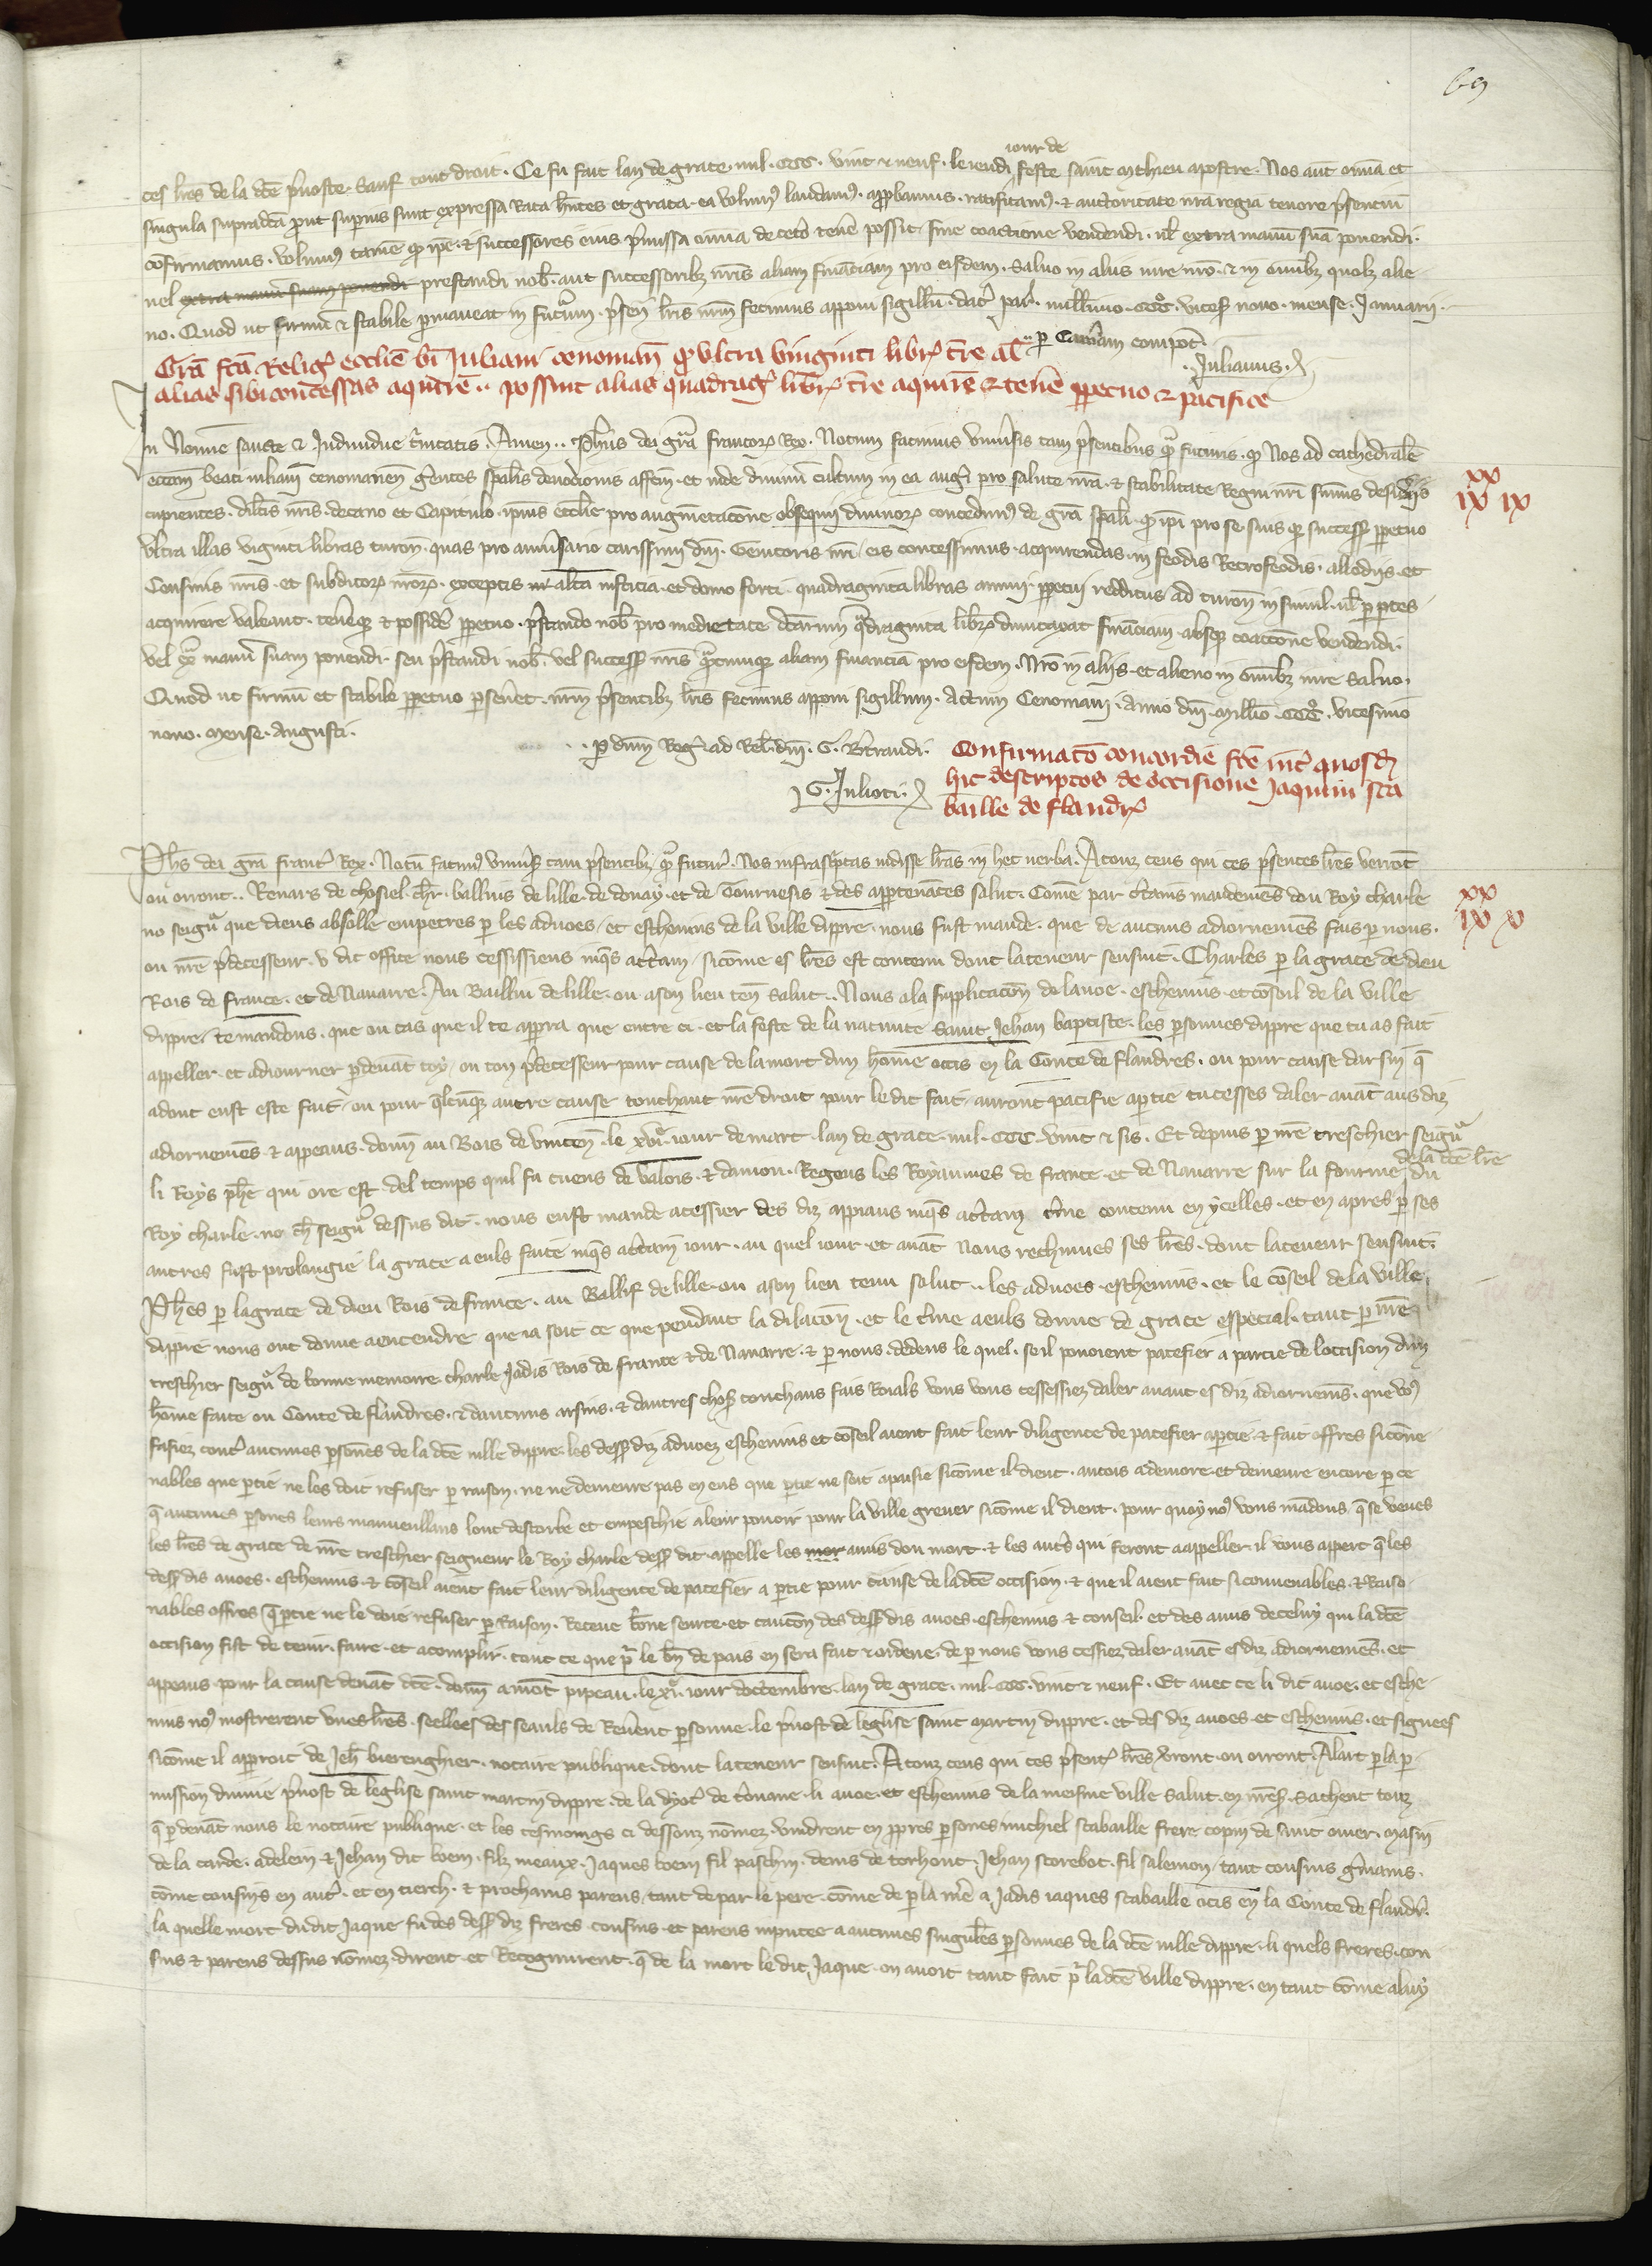 69
ces lr̃es de la dc̃e p̃uoste. Sauf tout droit. Ce fu fait lan de grace. mil. CCC. vint & neuf. le iendi iour de feste saint Mathieu apostre. Nos aut̃ om̃ia et
singula supradc̃a p̃ut superius sunt expressa Rata h̃ntes et grata. ea volum⁹ laudam⁹. app̃bamus. ratificam⁹. & auctoritate nr̃a regia tenore p̃sentiũ
cõfirmamus. Volum⁹ tamẽ q̃ ip̃e. & successores eius p̃missa om̃ia de cet̃o tenẽ possit sine coactione vendendi. ul̃ extra manũ suã ponendi.
uel extra manũ suam ponendi prestandi nob̃. aut successorib⁊ nr̃is aliam financiam pro eisdem. Saluo in aliis iure nr̃o. & in omib⁊ quol⁊ alie
no. Quod ut firmũ & stabile p̃maneat in futurũ. p̃sen̄ lr̃is nr̃m fecimus apponi sigillũ. dat̃ par̃. millimo. CCC°. vices̃ nono. mense. Januarij.
.. p̃ Cam̃am compot̃.
Julianus.
Gr̃a fc̃a Relig̃ ecclie bĩ Juliani cenomañ q̃ vltra vinginti libr̃ t̃re al̃
alias sibi concessas aquirẽ.. possint alias quadrag̃ libr̃ t̃re aquirẽ & tenẽ p̃petuo & pacifice
In Nomiẽ sancte & Indiuidue t̃nitatis. Amen.. Ph̃us dei gr̃a francor̃ Rex. Notum facimus vniũsis tam p̃sentibus q̃ futuris. q̃ Nos ad cathedralẽ
eccl̃am beati iuliani cenomanen̄ g̃entes sp̃alis deuoc̃ionis affc̃m. et inde diuinũ cultum in ea aug̃i pro salute nr̃a. & stabilitate Regni nr̃i sum̃is desid̃iis
cupientes. dil̃cis nr̃is. decano et Capitulo. ipsius ecclie pro augmẽtacõne obsequij diuinor̃ concedim⁹ de gr̃a sp̃ali q̃ ip̃i pro se suis q̃ success̃ p̃petuo
vltra illas viginti libras turoñ. quas pro anniũsario carissimi dñi. Genitoris nr̃i eis concessimus. acquirendas. in feodis Retrofeodis. allodijs. et
Censiuis nr̃is. et subditor̃ nr̃or̃. exceptis alta iusticia. et domo forti. quadraginta libras annui. p̃petui redditus ad turoñ in simul. ul̃ p̃ p̃tes
acquirere valeant. tenẽq̃ & possidẽ p̃petuo. p̃stando nob̃ pro medietate dc̃arum q̃draginta libr̃ dumtaxat financiam. absq̃ coaccõne vendendi.
vel ex̃ manũ suam ponendi. seu p̃standi nob̃. vel success̃ nr̃is q̃cumq̃ aliam financiã pro eisdem. Nr̃o in alijs. et alieno in om̃ib⁊ iure saluo.
Quod ut firmũ et stabile p̃petuo p̃seũet. nr̃m p̃sentib⁊ lr̃is fecimus apponi sigillum. Actum Cenomani. Anno dñi. Mill̃io. CCC°. vicesimo
nono. Mense. Augusti.
.. p̃ dñm Reg̃. ad Rel̃. dñi. G. B̃trandi.
G. Julioti.
Confirmac̃o concordie fc̃e int̃ quosd̃
hic descriptos de occisione Jaquini sca
baille de flandr̃
xx
ix ix
Ph̃s dei gr̃a franc̃ Rex. Notũ facim⁹ vniũs̃ tam p̃sentib⁊ q̃ futur̃. Nos infrasc̃ptas uidisse lr̃as in hec uerba. A touz ceus qui ces p̃sentes lr̃es verrõt
ou orront.. Renars de choisel. ch̃r. baillius de lille. de douay. et de Tournesis & des app̃tenãces salut. Comẽ par c̃tains mandemẽs dou Roy charle
no seigñr que dieus absoille empetres p̃ les aduoes, et escheuins de la ville dippre. nous fust mande. que de aucuns adiornemẽs fais p̃ nous.
ou nr̃e p̃decesseur. v dit office nous cessissiens iusq̃s ac̃tain, sicõme es lr̃es est contenu dont la teneur sensuit. Charles p̃ la grace de dieu
Rois de france. et de Nauarre. Au Bailliu de lille. ou a son lieu teñ. Salut.. Nous a la supplicacõn de lauoe. escheuins. et cõseil de la ville
dippre. te mandons. que ou cas que il te app̃ra que entre ci. et la feste de la natiuite Saint Jehan baptiste. les p̃sonnes dippre que tu as fait
appeller. et adiourner p̃ deuãt toy, ou ton p̃decesseur pour cause de la mort dun homẽ occis en la Conte de flandres. ou pour cause darsin q̃
adont eust este fait, ou pour q̃lcunq̃ autre cause touchant nr̃e droit pour le dit fait, auront pacifie a p̃tie tu cesses daler auãt aus di⁊
adiornemẽs & appeaus. dom̃ au Bois de vincen̄. le xvi̊. iour de mart. lan de grace. mil. CCC. vint & sis. Et depuis p̃ nr̃e treschier seigñr
li Roys ph̃e qui ore est del temps quil fu cuens de valois. & daniou. Regens les Royaumes de france. et de Nauarre sur la fourme de la dc̃e lr̃e du
Roy charle. no ch̃ seigñr dessus dit. nous eust mande a cessier des di⁊ appiaus iusq̃s ac̃tain t̃me contenu en ycelles. et en apres p̃ ses
autres fust prolongie la grace a euls faite iusq̃s ac̃tain iour. au quel iour et auãt nous rechumes ses lr̃es. dont la teneur sensuit.
Ph̃es p̃ la grace de dieu Rois de france. au Baillif de lille. ou a son lieu tenu salut.. les aduoes. escheuins. et le cõseil de la ville
dippre nous ont donne a entendre que ia soit ce que pendant la dilacõn. et le t̃me a euls donne de grace especial. tant p̃ nr̃e
treschier seigñr de bonne memoire charle Jadis Rois de france & de Nauarre. & p̃ nous. dedens le quel. se il pouoient pacefier a partie de loccision dun
homẽ faite ou Conte de flandres. & daucuns arsins. & dautres chos̃ touchans fais Roials vous vous cessessiez daler auant es di⁊ adiornemẽs. que vo⁹
fasiez cont̃ aucunes p̃sonẽs de la dc̃e uille dippre. les dess̃ di⁊ aduoe⁊ escheuins et cõseil aient fait leur diligence de pacefier a p̃tie & fait offres sicõue
nables que p̃tie ne les doit refuser p̃ raison. ne ne demeure pas en eus que p̃tie ne soit apaisie sicõme il dient. ancois ademore et demeure encore p̃ ce
q̃ aucunes p̃sones leurs maueullans lont destorbe et empeschie a leur pouoir pour la ville greuer sicõme il dient. pour quoy no⁹ vous mãdons. q̃ se veues
les lr̃es de grace de nr̃e treschier seigneur le Roy charle dess̃ dit. appelle les mor amis dou mort. & les autr̃ qui seront a appeller. il vous appert q̃ les
dess̃ dis auoes. escheuins. & cõseil aient fait leur diligence de pacefier a p̃tie pour cause de la dc̃e occision. & que il aient fait si conuenables. & Raiso
nables offres q̃ p̃tie ne le doie refuser p̃ Raison. Receue bõne seurte. et caucõn des dess̃ dis auoes. escheuins & conseil. et des amis de celuy qui la dc̃e
occision fist de tenir. faire. et acomplir. tout ce que p̃ le bñ de pais en sera fait & ordene. de p̃ nous vous cessiez daler auãt es di⁊ adiornemẽs. et
appeaus pour la cause deuãt dc̃e. dom̃ a mõt pipeau. le xi̊. iour doctembre. lan de grace. mil. CCC. vint & neuf. Et auec ce li dit auoe. et esche
uins no⁹ mostrerent vnes lr̃es. seellees des seauls de Reũent p̃sonne. le p̃uost de leglise saint Martin dippre. et des di⁊ auoes. et escheuins. et signees
sicõme il apparoit de Jeh̃ bierenghier. notaire publique. dont la teneur sensuit. A touz ceus qui ces p̃sent̃ lr̃es ṽront. ou orront. Alart p̃ la p̃
mission diuine p̃uost de leglise saint martin dippre. de la dyoc̃ de t̃ouane. li auoe. et escheuins de la meisme ville Salut. en nr̃e s̃. Sachent touz
q̃ p̃ deuãt nous le notaire publique. et les tesmoings ci dessouz nõmez. vindrent en p̃pres p̃sones michiel scabaille frere copin de saint omer. Masin
de la carde. adelein. & Jehan dit boem. filz meaux. Jaques boem fil paschin. denis de torhout. Jehan scorebot. fil salemon, tant cousins g̃mains.
cõme cousins en aut̃. et en tierch. & prochains parens, tant de par le pere. cõme de p̃ la me̊e a Jadis iaques scabaille ocis en la Conte de flandr̃.
la quelle mort du dit Jaque fu des dess̃ di⁊ freres. cousins. et parens inputee a aucunes singul̃es p̃sonnes de la dc̃e uille dippre. li quels freres. cou
sins & parens dessus nõmez. dirent. et Recognurent. q̃ de la mort le dit Jaque. on auoit tant fait p̃ la dc̃e ville dippre. en tant cõme a luy
xx
ix x